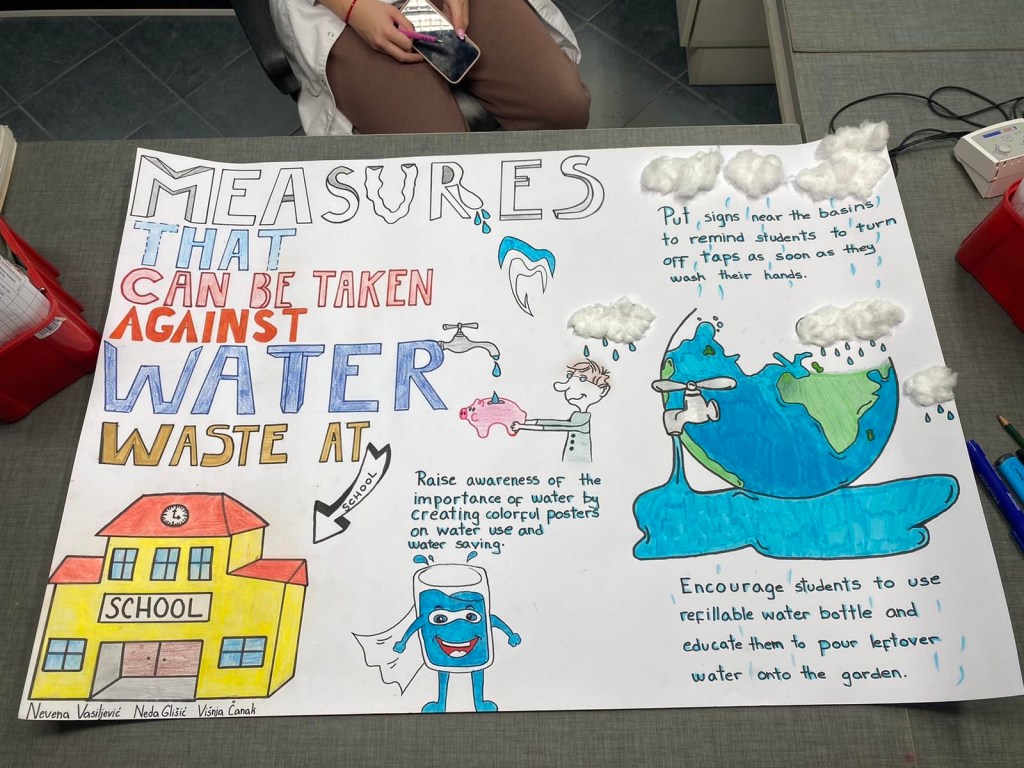 MEASURES
THAT
CAN BE TAKEN
AGAINST
WATER
WASTE AT
SCHOOL
SCHOOL
Nevena Vasiljević Neda Glišić Višnja Čanak
Raise awareness of the
importance of water by
creating colorful posters
on water use and
water saving.
Put signs near the basins
to remind students to turn
off taps as soon as they
wash their hands.
Encourage students to use
refillable water bottle and
educate them to pour leftover
water onto the garden.